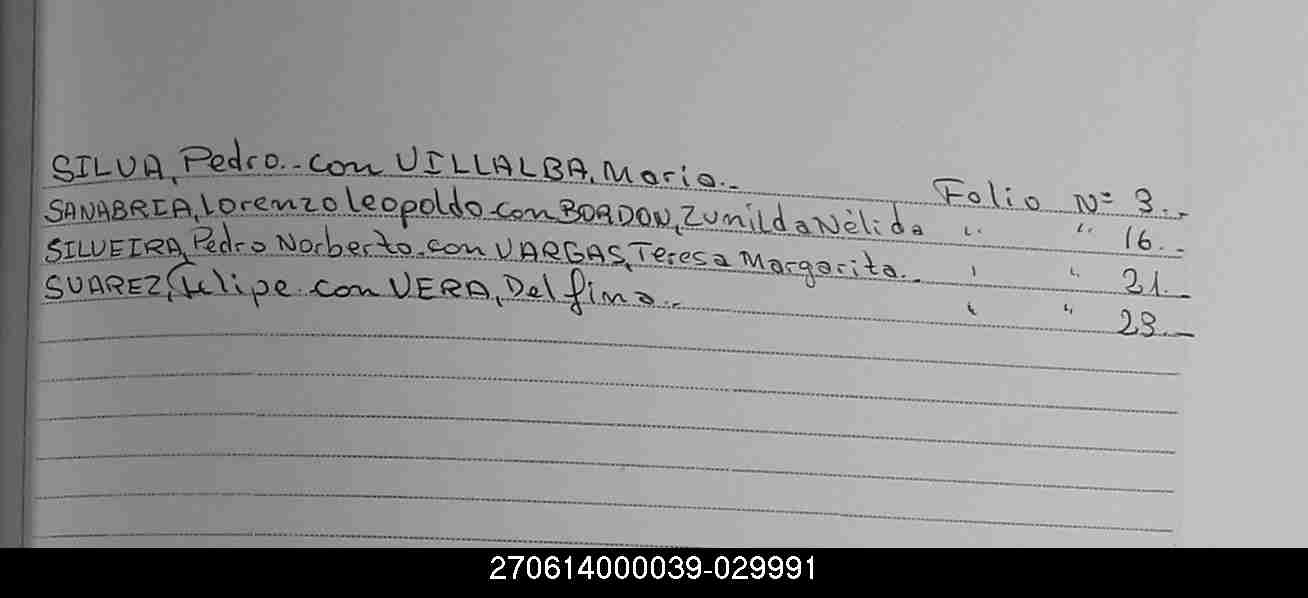 SILVA, Pedro.- con VILLALBA, Maria.- Folio Nº 3.-
SANABRIA, Lorenzo Leopoldo con BORDON, Zunilda Nélida " " 16.-
SILVEIRA, Pedro Norberto con VARGAS, Teresa Margarita.- " " 21.-
SUAREZ, Felipe con VERA, Delfina.- " " 23.-
270614000039-029991